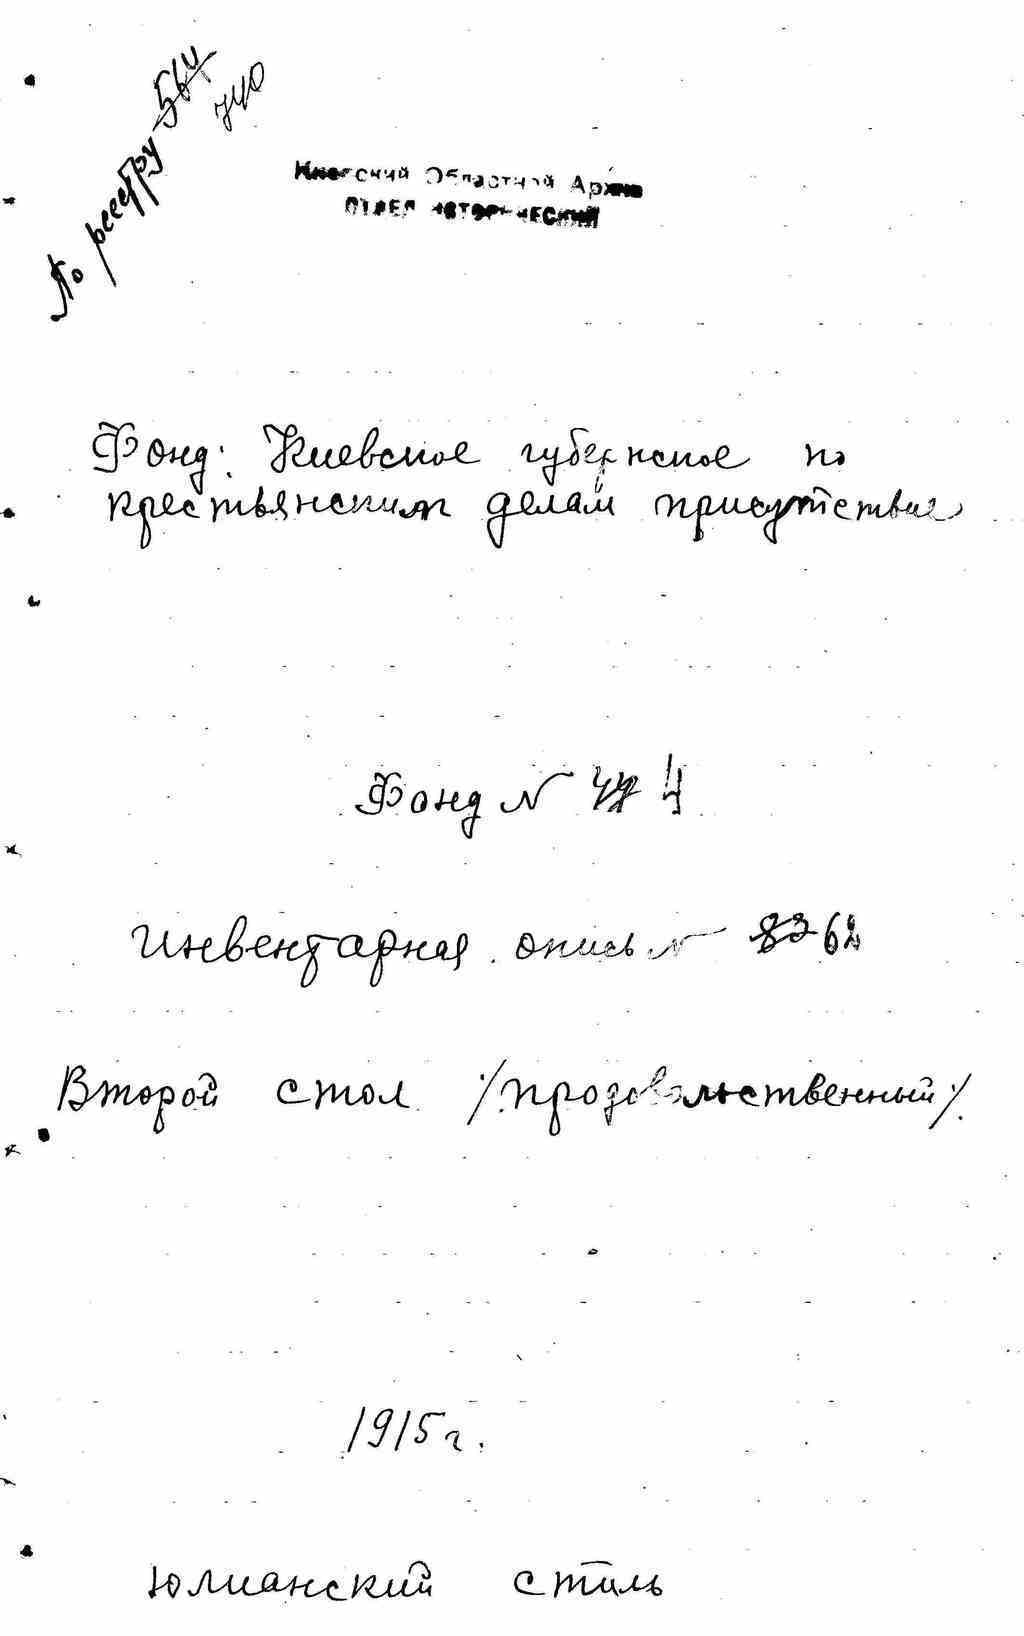 По реестру 564
740
Киевский Областной Архив
ОТДЕЛ ИСТОРИЧЕСКИЙ
Фонд: Киевское губернское по
крестьянским делам присутствие
Фонд N 4
Инвентарная опись N 62
Второй стол /продовольственный/.
1915 г.
Юлианский стиль